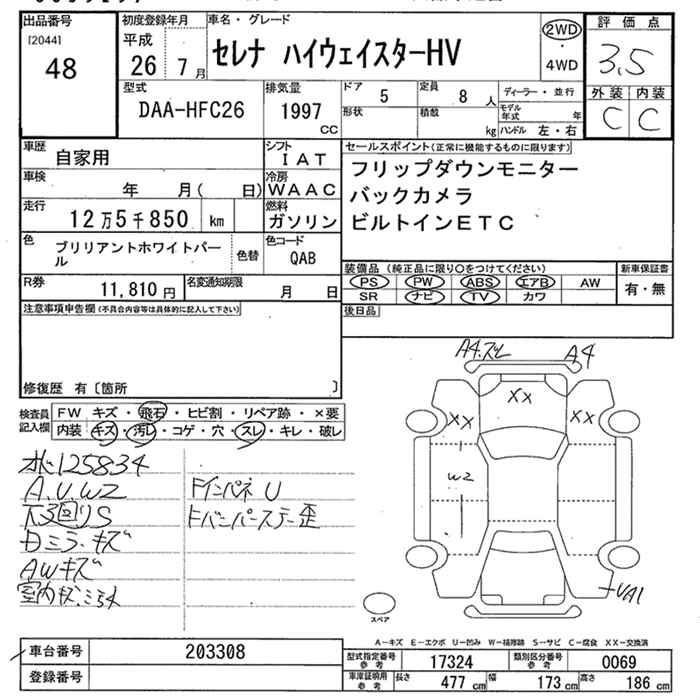 出品番号
[2044]
48
初度登録年月
平成
26 年 7 月
車名・グレード
セレナ ハイウェイスターHV
2WD
・
4WD
評価点
3.5
外装 内装
C C
型式
DAA-HFC26
排気量
1997
CC
ドア 5
定員 8 人
形状
積載 kg
ディーラー・並行
モデル年式 年
ハンドル 左・右
車歴
自家用
シフト
IAT
車検
年 月( 日)
冷房
WAAC
走行
12万5千850 km
燃料
ガソリン
色
ブリリアントホワイトパール
色替
色コード
QAB
R券
11,810 円
名変通知期限
月 日
セールスポイント(正常に機能するものに限ります)
フリップダウンモニター
バックカメラ
ビルトインETC
装備品 (純正品に限り○をつけてください)
PS PW ABS エアB AW
SR ナビ TV カワ
新車保証書
有・無
後日品
注意事項申告欄(不具合内容等は具体的に記入して下さい)
修復歴 有〔箇所 〕
検査員記入欄
FW キズ・飛石・ヒビ割・リペア跡・×要
内装 キズ・汚レ・コゲ・穴・スレ・キレ・破レ
125834
A.U.W2
下回りS
ミラーキズ
AWキズ
室内キズ
FインパネU
Fバンパーステー歪
A4
A4
XX
XX
XX
W2
UA1
スペア
A－キズ E－エクボ U－凹み W－補修跡 S－サビ C－腐食 XX－交換済
車台番号
203308
登録番号
型式指定番号
参考
17324
類別区分番号
参考
0069
車庫証明用
参考
長さ 477 cm
幅 173 cm
高さ 186 cm